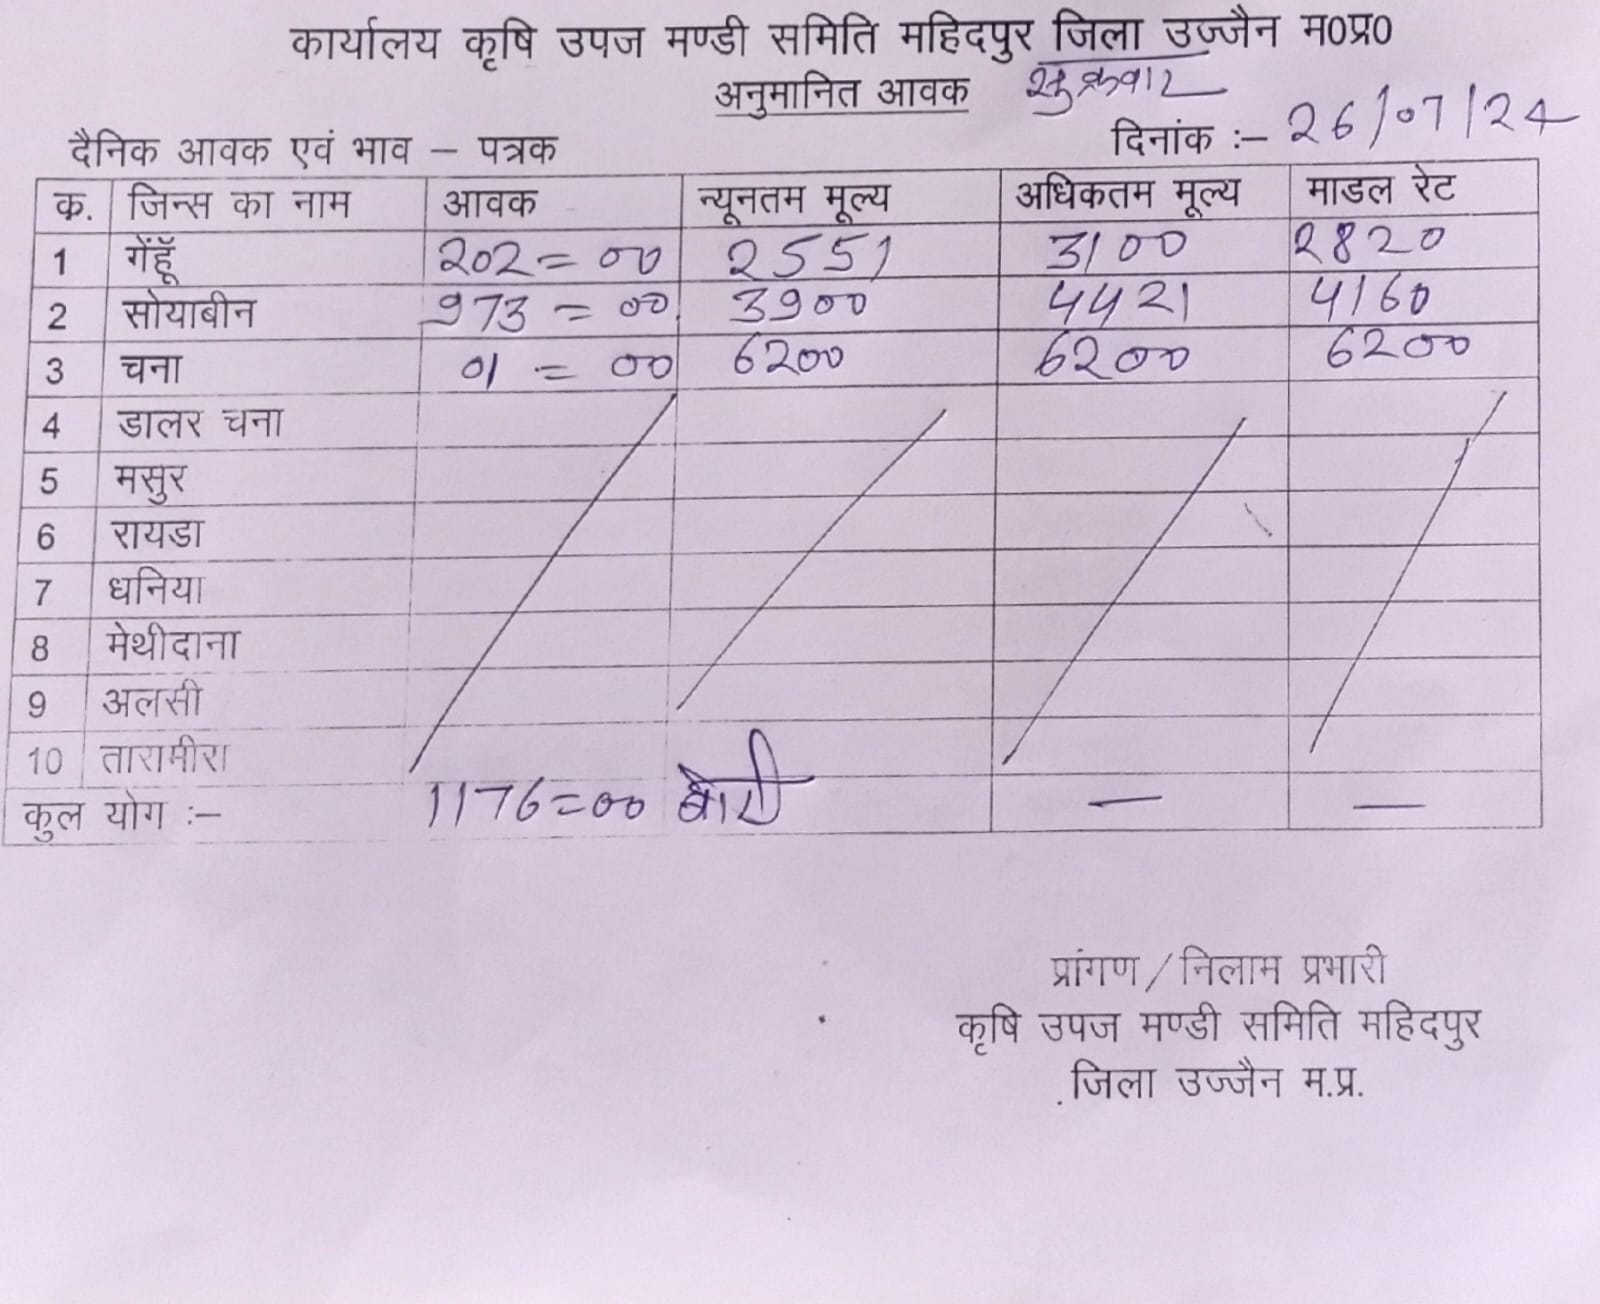 कार्यालय कृषि उपज मण्डी समिति महिदपुर जिला उज्जैन म0प्र0
अनुमानित आवक शुक्रवार
दैनिक आवक एवं भाव – पत्रक दिनांक :– 26/07/24
क. जिन्स का नाम आवक न्यूनतम मूल्य अधिकतम मूल्य माडल रेट
1 गेंहूँ 202=00 2551 3100 2820
2 सोयाबीन 973=00 3900 4421 4160
3 चना 01=00 6200 6200 6200
4 डालर चना
5 मसुर
6 रायडा
7 धनिया
8 मेथीदाना
9 अलसी
10 तारामीरा
कुल योग :– 1176=00 बोरी — —
प्रांगण/निलाम प्रभारी
कृषि उपज मण्डी समिति महिदपुर
जिला उज्जैन म.प्र.